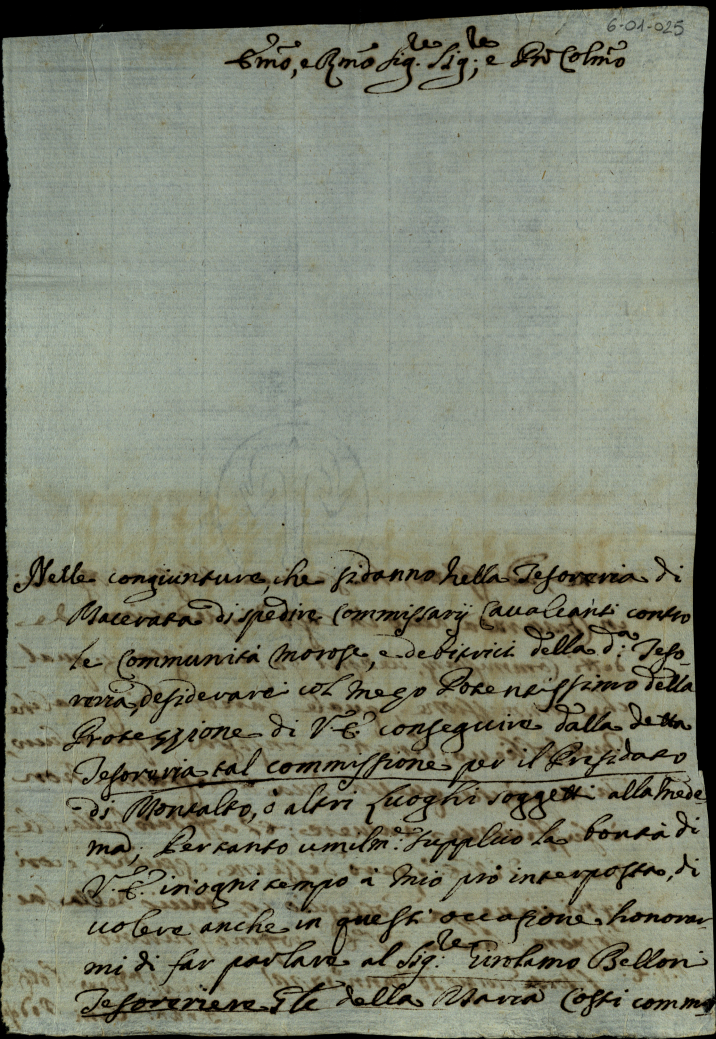 6-01-025
Emõ, e Rmõ Sig.re Sig.re, e Prõ Colmõ
Nelle congiunture, che si danno nella Tesoreria di
Macerata di spedire Commissarij Cavalcanti contro
le Communità morose, e debitrici della d.a Teso-
reria, desiderarei col mezo Potentissimo della
Protezzione di V.E. conseguire dalla detta
Tesoreria tal commissione per il Presidato
di Montalto, ò altri Luoghi soggetti alla mede
ma; Pertanto umilm.e supplico la bontà di
V.E. in ogni tempo à mio prò interposta, di
volere anche in questi occasione honorar-
mi di far parlare al Sig.re Girolamo Belloni
Tesoreriere Gle della Marca Costì comm